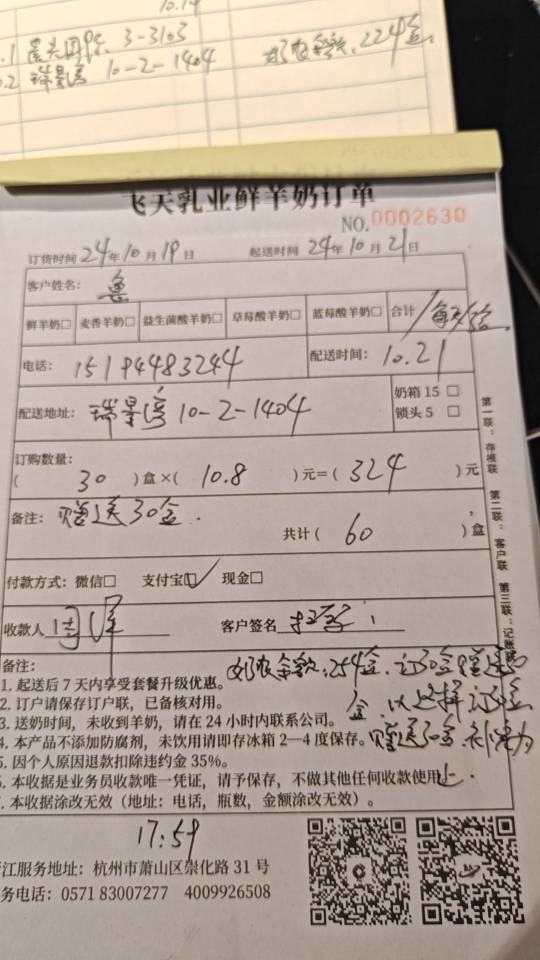 10.14
.1 3-3103
0.2 瑞景湾 10-2-1404 奶农余款,224盒
飞天乳业鲜羊奶订单
NO.0002630
订货时间 24年10月19日 起送时间 24年10月21日
客户姓名: 鲁
鲜羊奶□ 麦香羊奶□ 益生菌酸羊奶□ 草莓酸羊奶□ 蓝莓酸羊奶□ 合计
电话: 15194483244 配送时间: 10.21
配送地址: 瑞景湾 10-2-1404 奶箱 15 □
锁头 5 □
订购数量:
( 30 )盒×( 10.8 )元=( 324 )元
备注: 赠送30盒.
共计( 60 )盒
付款方式: 微信□ 支付宝☑ 现金□
收款人 客户签名
第一联:存根联 第二联:客户联 第三联:记账联
备注: 奶农余款,254盒.订30盒赠送30
1. 起送后 7 天内享受套餐升级优惠。
2. 订户请保存订户联,已备核对用。 盒
3. 送奶时间,未收到羊奶,请在 24 小时内联系公司。
4. 本产品不添加防腐剂,未饮用请即存冰箱 2—4 度保存。 赠送30盒
5. 因个人原因退款扣除违约金 35%。
6. 本收据是业务员收款唯一凭证,请予保存,不做其他任何收款使用 止.
7. 本收据涂改无效(地址:电话,瓶数,金额涂改无效)。
17:59
江服务地址:杭州市萧山区崇化路 31 号
务电话:0571 83007277 4009926508